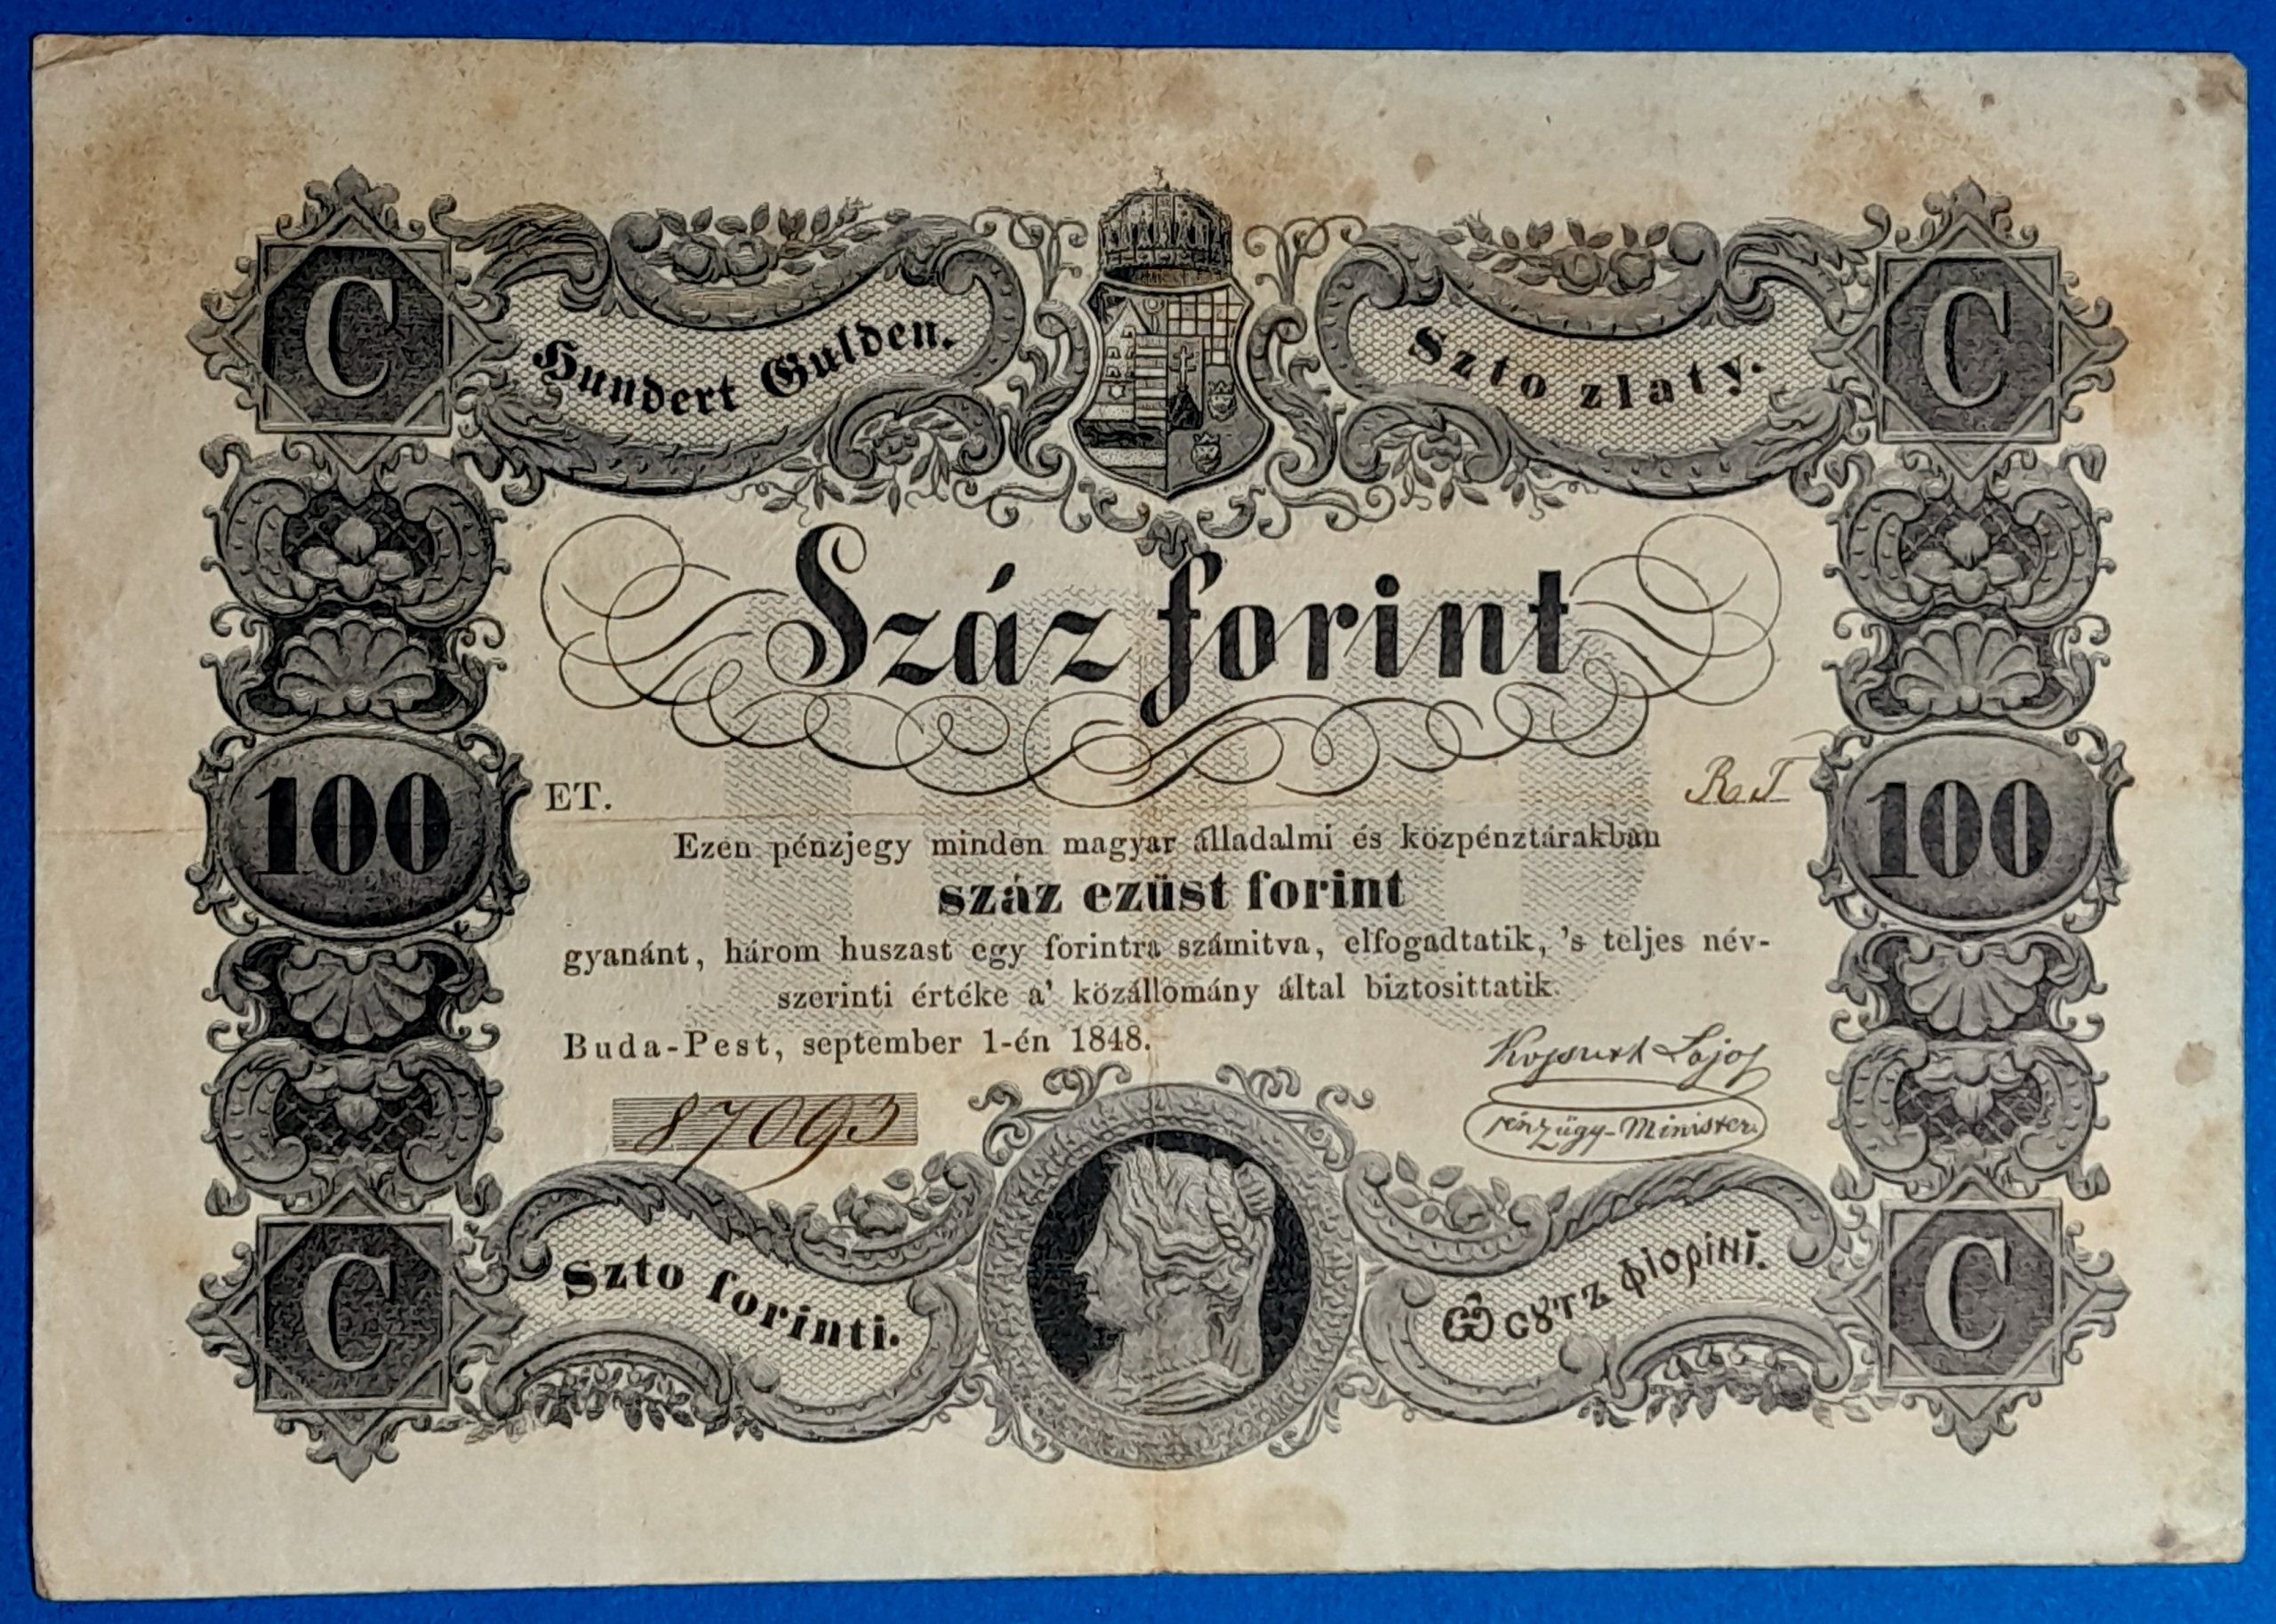 C
Hundert Gulden.
Szto zlaty.
C
Száz forint
100
ET.
R.T
100
Ezen pénzjegy minden magyar álladalmi és közpénztárakban
száz ezüst forint
gyanánt, három huszast egy forintra számitva, elfogadtatik, 's teljes név-
szerinti értéke a' közállomány által biztosittatik.
Buda-Pest, september 1-én 1848.
Kossuth Lajos
87093
pénzügy-Minister.
C
Szto forinti.
Ѿ сꙋтъ фіоріні.
C